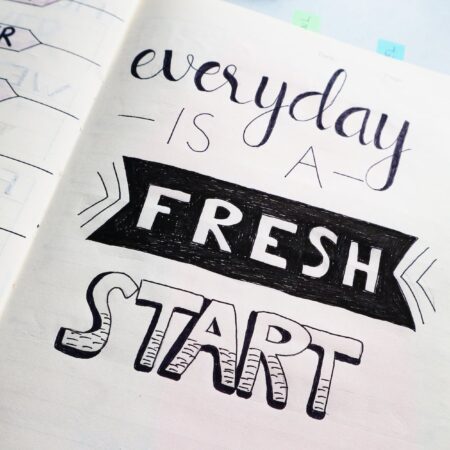 everyday
IS A
FRESH
START
R